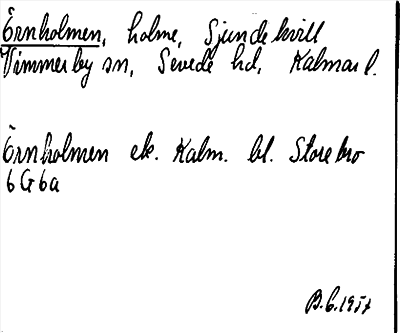 Örnholmen, holme, Gjundekvill
Vimmerby sn, Sevede hd, Kalmar l.
Örnholmen ek. Kalm. bl. Storebro
6G6a
B.G. 1957